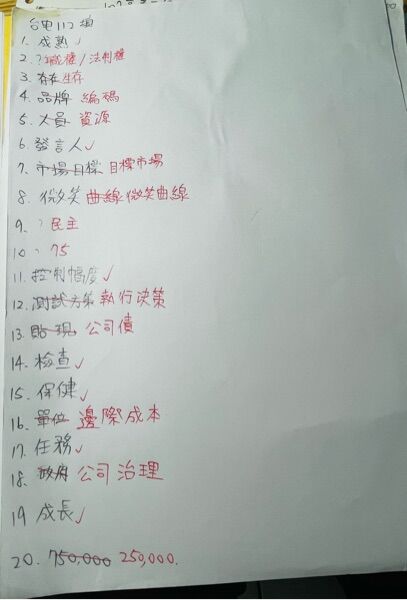 台電112填
1. 成熟✓
2. ? 職權/法制權
3. 存在 生存
4. 品牌 編碼
5. 人員 資源
6. 發言人✓
7. 市場目標 目標市場
8. 微笑 曲線 微笑曲線
9. ? 民主
10 ? 75
11. 控制幅度✓
12. 測試方案 執行決策
13. 貼現 公司債
14. 檢查✓
15. 保健✓
16. 單位 邊際成本
17. 任務✓
18. 政府 公司治理
19 成長✓
20. 750,000 250,000.